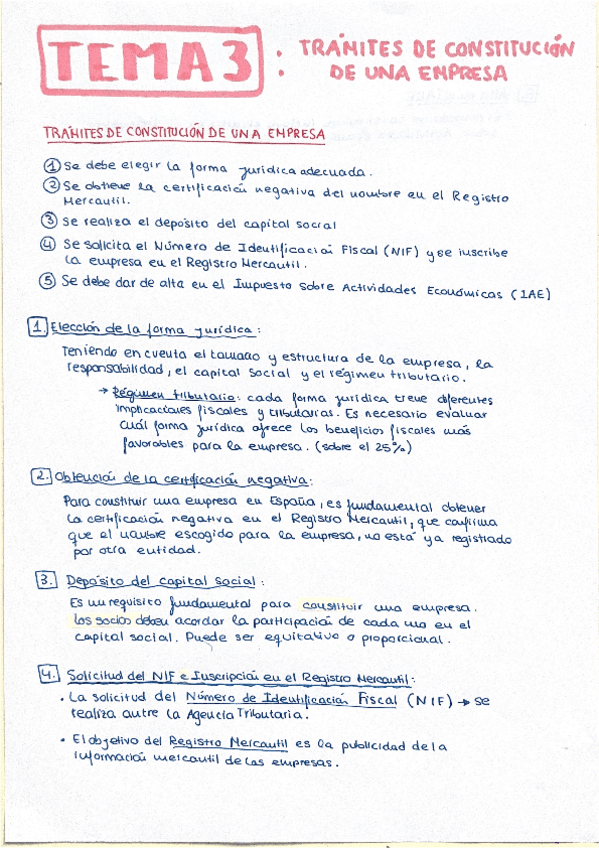 TEMA 3 : TRÁMITES DE CONSTITUCIÓN
DE UNA EMPRESA
TRÁMITES DE CONSTITUCIÓN DE UNA EMPRESA
① Se debe elegir la forma jurídica adecuada.
② Se obtiene la certificación negativa del nombre en el Registro
Mercantil.
③ Se realiza el depósito del capital social
④ Se solicita el Número de Identificación Fiscal (NIF) y se inscribe
la empresa en el Registro Mercantil.
⑤ Se debe dar de alta en el Impuesto sobre Actividades Económicas (IAE)
1. Elección de la forma jurídica:
Teniendo en cuenta el tamaño y estructura de la empresa, la
responsabilidad, el capital social y el régimen tributario.
→ Régimen tributario: cada forma jurídica tiene diferentes
implicaciones fiscales y tributarias. Es necesario evaluar
cuál forma jurídica ofrece los beneficios fiscales más
favorables para la empresa. (sobre el 25%)
2. Obtención de la certificación negativa:
Para constituir una empresa en España, es fundamental obtener
la certificación negativa en el Registro Mercantil, que confirma
que el nombre escogido para la empresa, no está ya registrado
por otra entidad.
3. Depósito del capital social:
Es un requisito fundamental para constituir una empresa.
Los socios deben acordar la participación de cada uno en el
capital social. Puede ser equitativo o proporcional.
4. Solicitud del NIF e Inscripción en el Registro Mercantil:
• La solicitud del Número de Identificación Fiscal (NIF) → se
realiza antre la Agencia Tributaria.
• El objetivo del Registro Mercantil es la publicidad de la
información mercantil de las empresas.